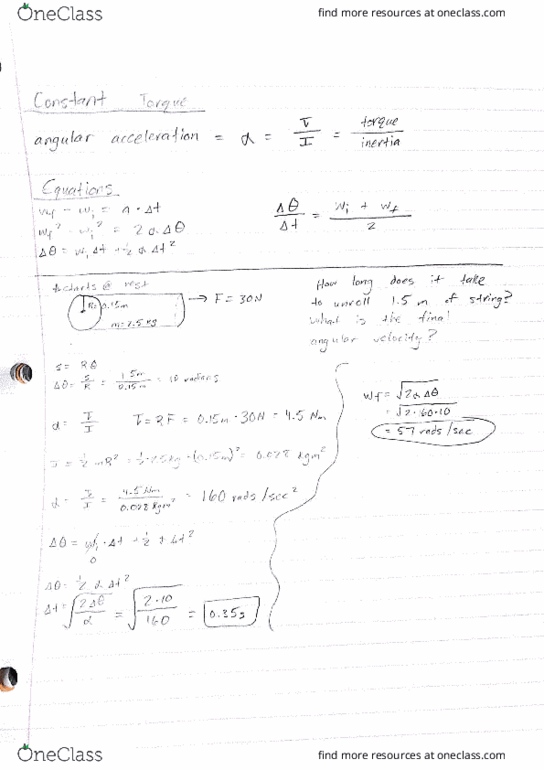 OneClass
find more resources at oneclass.com
Constant Torque
angular acceleration = α = τ/I = torque/inertia
Equations
wf - wi = α · Δt
wf² - wi² = 2αΔθ
Δθ = wiΔt + ½αΔt²
Δθ/Δt = (wi + wf)/2
starts @ rest
R= 0.15m
→ F = 30N
How long does it take
to unroll 1.5 m of string?
What is the final
angular velocity?
S = Rθ
Δθ = S/R = 1.5m/0.15m = 10 radians
α = τ/I τ = RF = 0.15m · 30N = 4.5 Nm
I = ½mR² = ½ · 2.5kg · (0.15m)² = 0.028 kgm²
α = τ/I = 4.5Nm/0.028kgm² = 160 rads/sec²
Δθ = wi · Δt + ½αΔt²
0
Δθ = ½αΔt²
Δt = √(2Δθ/α) = √(2·10/160) = 0.35s
wf = √2αΔθ
= √2·160·10
= 57 rads/sec
OneClass
find more resources at oneclass.com